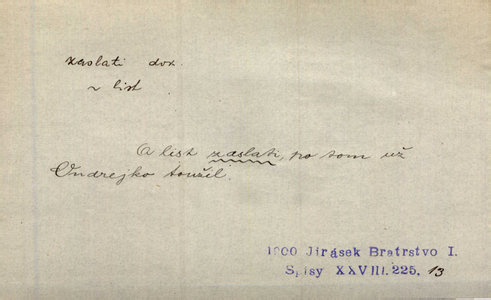 zaslati dok.
~ list
A list zaslati, po tom už
Ondrejko toužil.
1900 Jirásek Bratrstvo I.
Spisy XXVIII. 225, 13